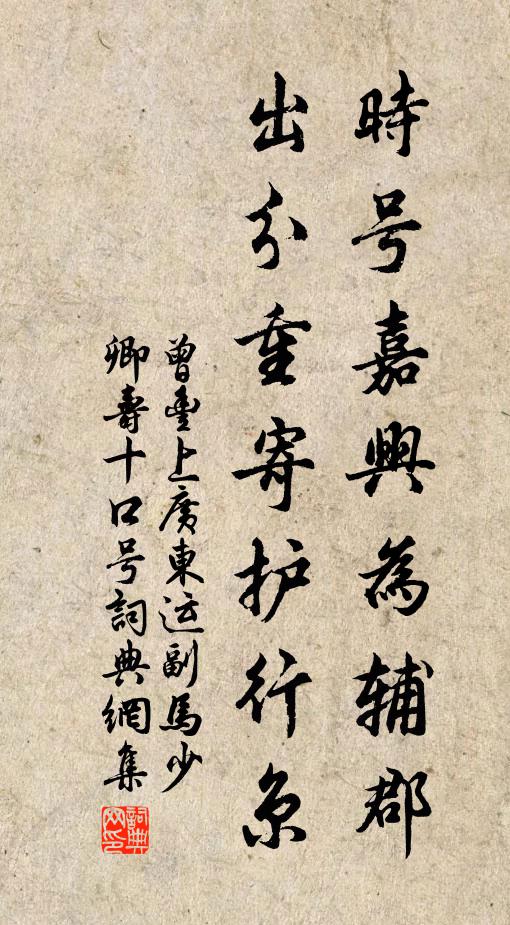 時号嘉興為辅郡
出分重寄护行京
曾豊上廣東运副馬少
卿壽十口号詞典網集
詞典网印